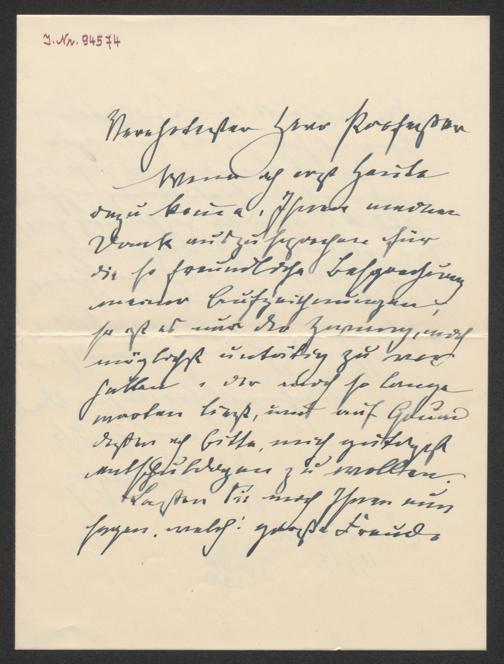 J. Nr. 94574
Verehrtester Herr Professor
Wenn ich erst heute
dazu komme, Ihnen meinen
Dank auszusprechen für
die so freundliche Besprechung
meiner Aufzeichnungen,
so ist es nur der Zwang, mich
möglichst untätig zu ver
halten, der mich so lange
warten liess, und auf Grund
dessen ich bitte, mich gütigst
entschuldigen zu wollen.
Lassen Sie mich Ihnen nun
sagen, welch' grosse Freude